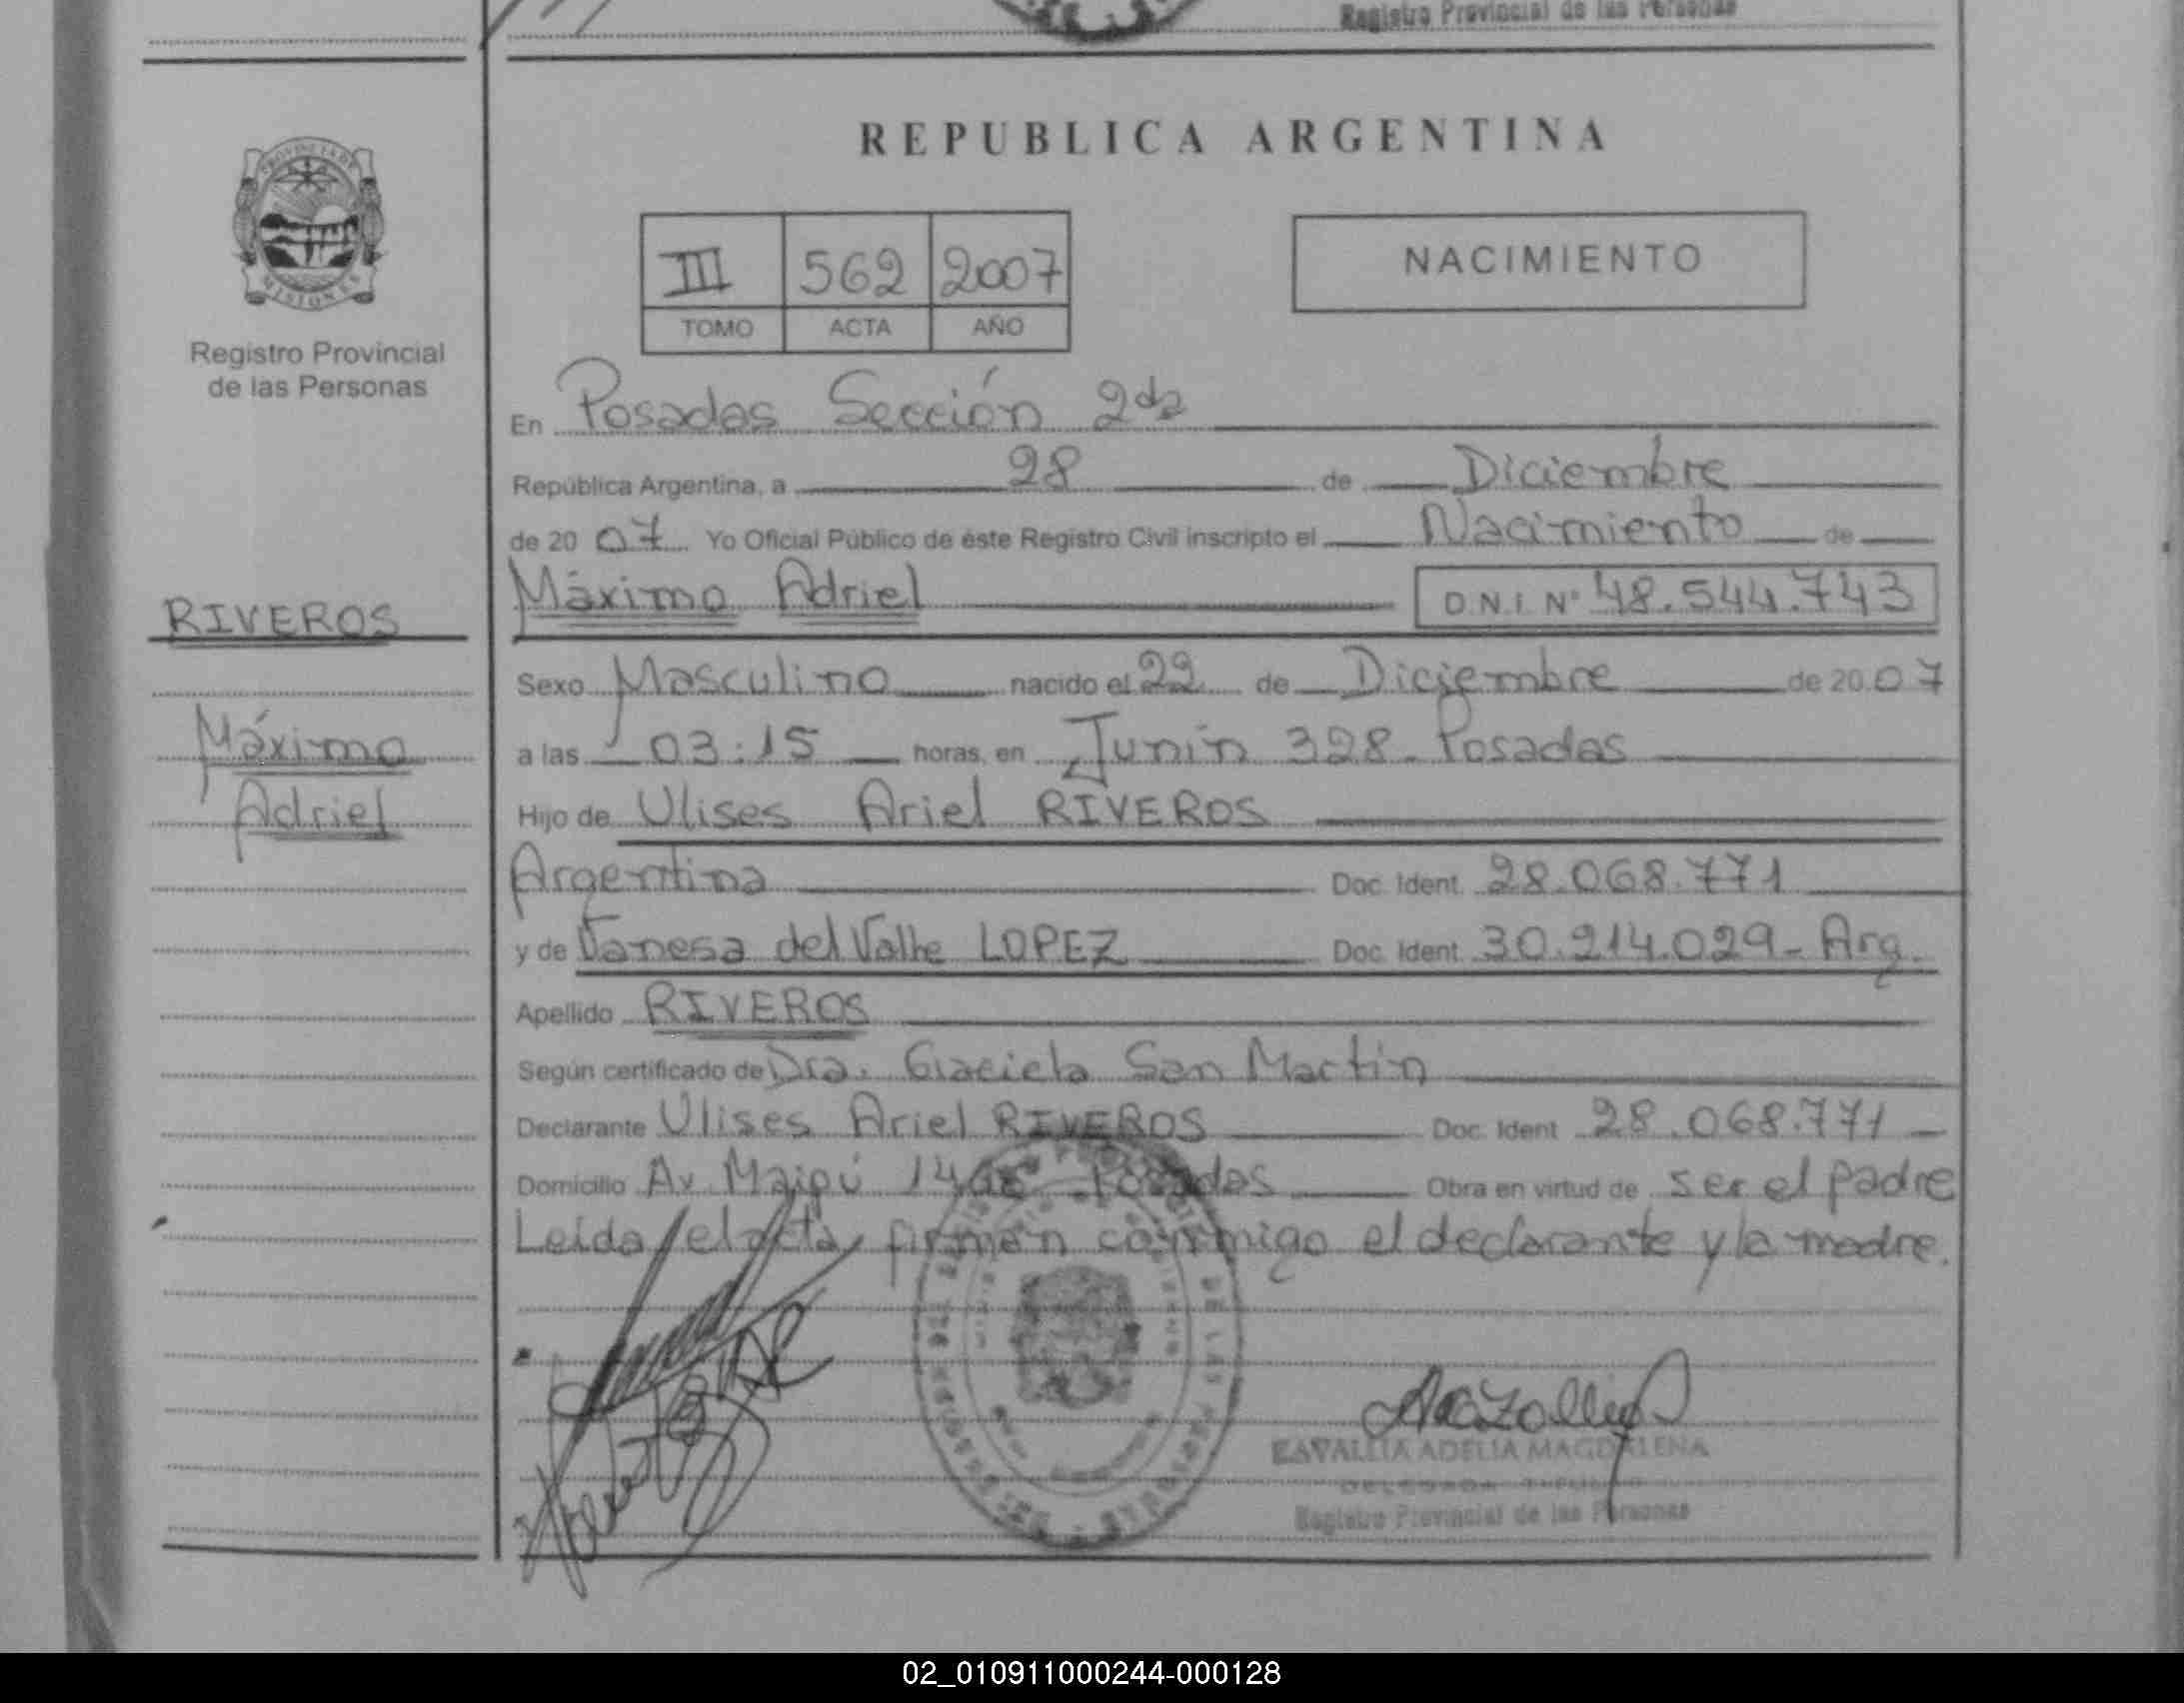 Registro Provincial de las Personas
REPUBLICA ARGENTINA
PROVINCIA DE
MISIONES
Registro Provincial
de las Personas
III 562 2007
TOMO ACTA AÑO
NACIMIENTO
En Posadas Sección 2da
República Argentina, a 28 de Diciembre
de 20 07 Yo Oficial Público de éste Registro Civil inscripto el Nacimiento de
RIVEROS
Máximo Adriel D.N.I. Nº 48.544.743
Sexo Masculino nacido el 22 de Diciembre de 20 07
Máximo
a las 03:15 horas, en Junín 328 - Posadas
Adriel
Hijo de Ulises Ariel RIVEROS
Argentina Doc. Ident. 28.068.771
y de Vanesa del Valle LOPEZ Doc. Ident. 30.214.029 - Arg.
Apellido RIVEROS
Según certificado de Dra. Graciela San Martín
Declarante Ulises Ariel RIVEROS Doc. Ident 28.068.771
Domicilio Av. Maipú Posadas Obra en virtud de ser el padre
Leída el acta, firman conmigo el declarante y la madre.
ADELIA MAGDALENA
DELEGADA TITULAR
Registro Provincial de las Personas
02_010911000244-000128